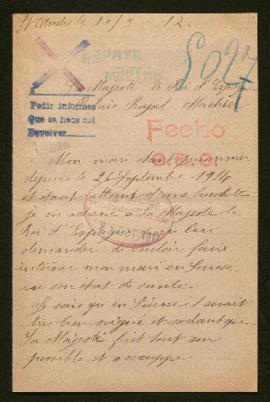 St André le 10/9
5027
REPATR
Sa Majesté le Roi d'Espagne
Palais Royal Madrid
Pedir informes
Que se haga así
Devolver
Fecho
Mon mari étant prisonnier
depuis le 26 Septembre 1914
et étant atteint d'une
je m'adresse à Sa Majesté le
Roi d'Espagne pour lui
demander de vouloir faire
interner mon mari en Suisse
vu son état de santé.
Je sais qu'en Suisse il serait
très bien soigné et sachant que
Sa Majesté fait tout son
possible et s'occupe